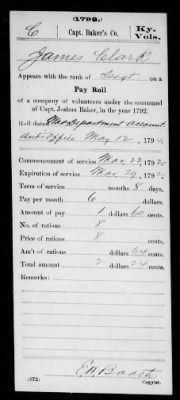 1792.
C | Capt. Baker's Co. | Ky. Vols.
James Clark
Appears with the rank of Sergt on a
Pay Roll
of a company of volunteers under the command
of Capt. Joshua Baker, in the year 1792.
Roll dated War Department account-
ant's office May 12, 1794.
Commencement of service Mar. 22, 1792.
Expiration of service Mar. 29, 1792.
Term of service months 8 days.
Pay per month 6 dollars
Amount of pay 1 dollars 60 cents.
No. of rations 8
Price of rations 8
Am't of rations dollars 64 cents.
Total amount 2 dollars 24 cents.
Remarks:
E. H. Booth
(572) Copyist.